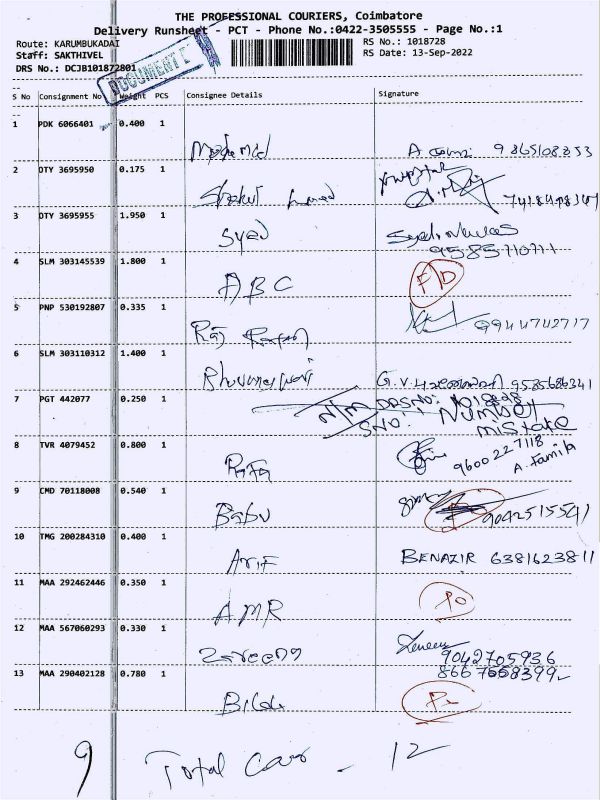 THE PROFESSIONAL COURIERS, Coimbatore
Delivery Runsheet - PCT - Phone No.:0422-3505555 - Page No.:1
Route: KARUMBUKADAI
RS No.: 1018728
Staff: SAKTHIVEL
RS Date: 13-Sep-2022
DRS No.: DCJB101872801
DOCUMENT
S No Consignment No Weight PCS Consignee Details Signature
1 PDK 6066401 0.400 1
Mohamed 9865108853
2 DTY 3695950 0.175 1
3 DTY 3695955 1.950 1
Syed
9585710711
4 SLM 303145539 1.800 1
ABC F/D
5 PNP 530192807 0.335 1
Raj 9944742717
6 SLM 303110312 1.400 1
Bhuvaneswari G.V. 9585686341
7 PGT 442077 0.250 1
DRSNO:
SNO. Number
mistake
8 TVR 4079452 0.800 1
Raja 9600227118
A. Famila
9 CMD 70118008 0.540 1
Babu 9042515541
10 TMG 200284310 0.400 1
Arif BENAZIR 6381623811
11 MAA 292462446 0.350 1
AMR
12 MAA 567060293 0.330 1
Zareena 9042705936
13 MAA 290402128 0.780 1
9 Total Cavr - 12